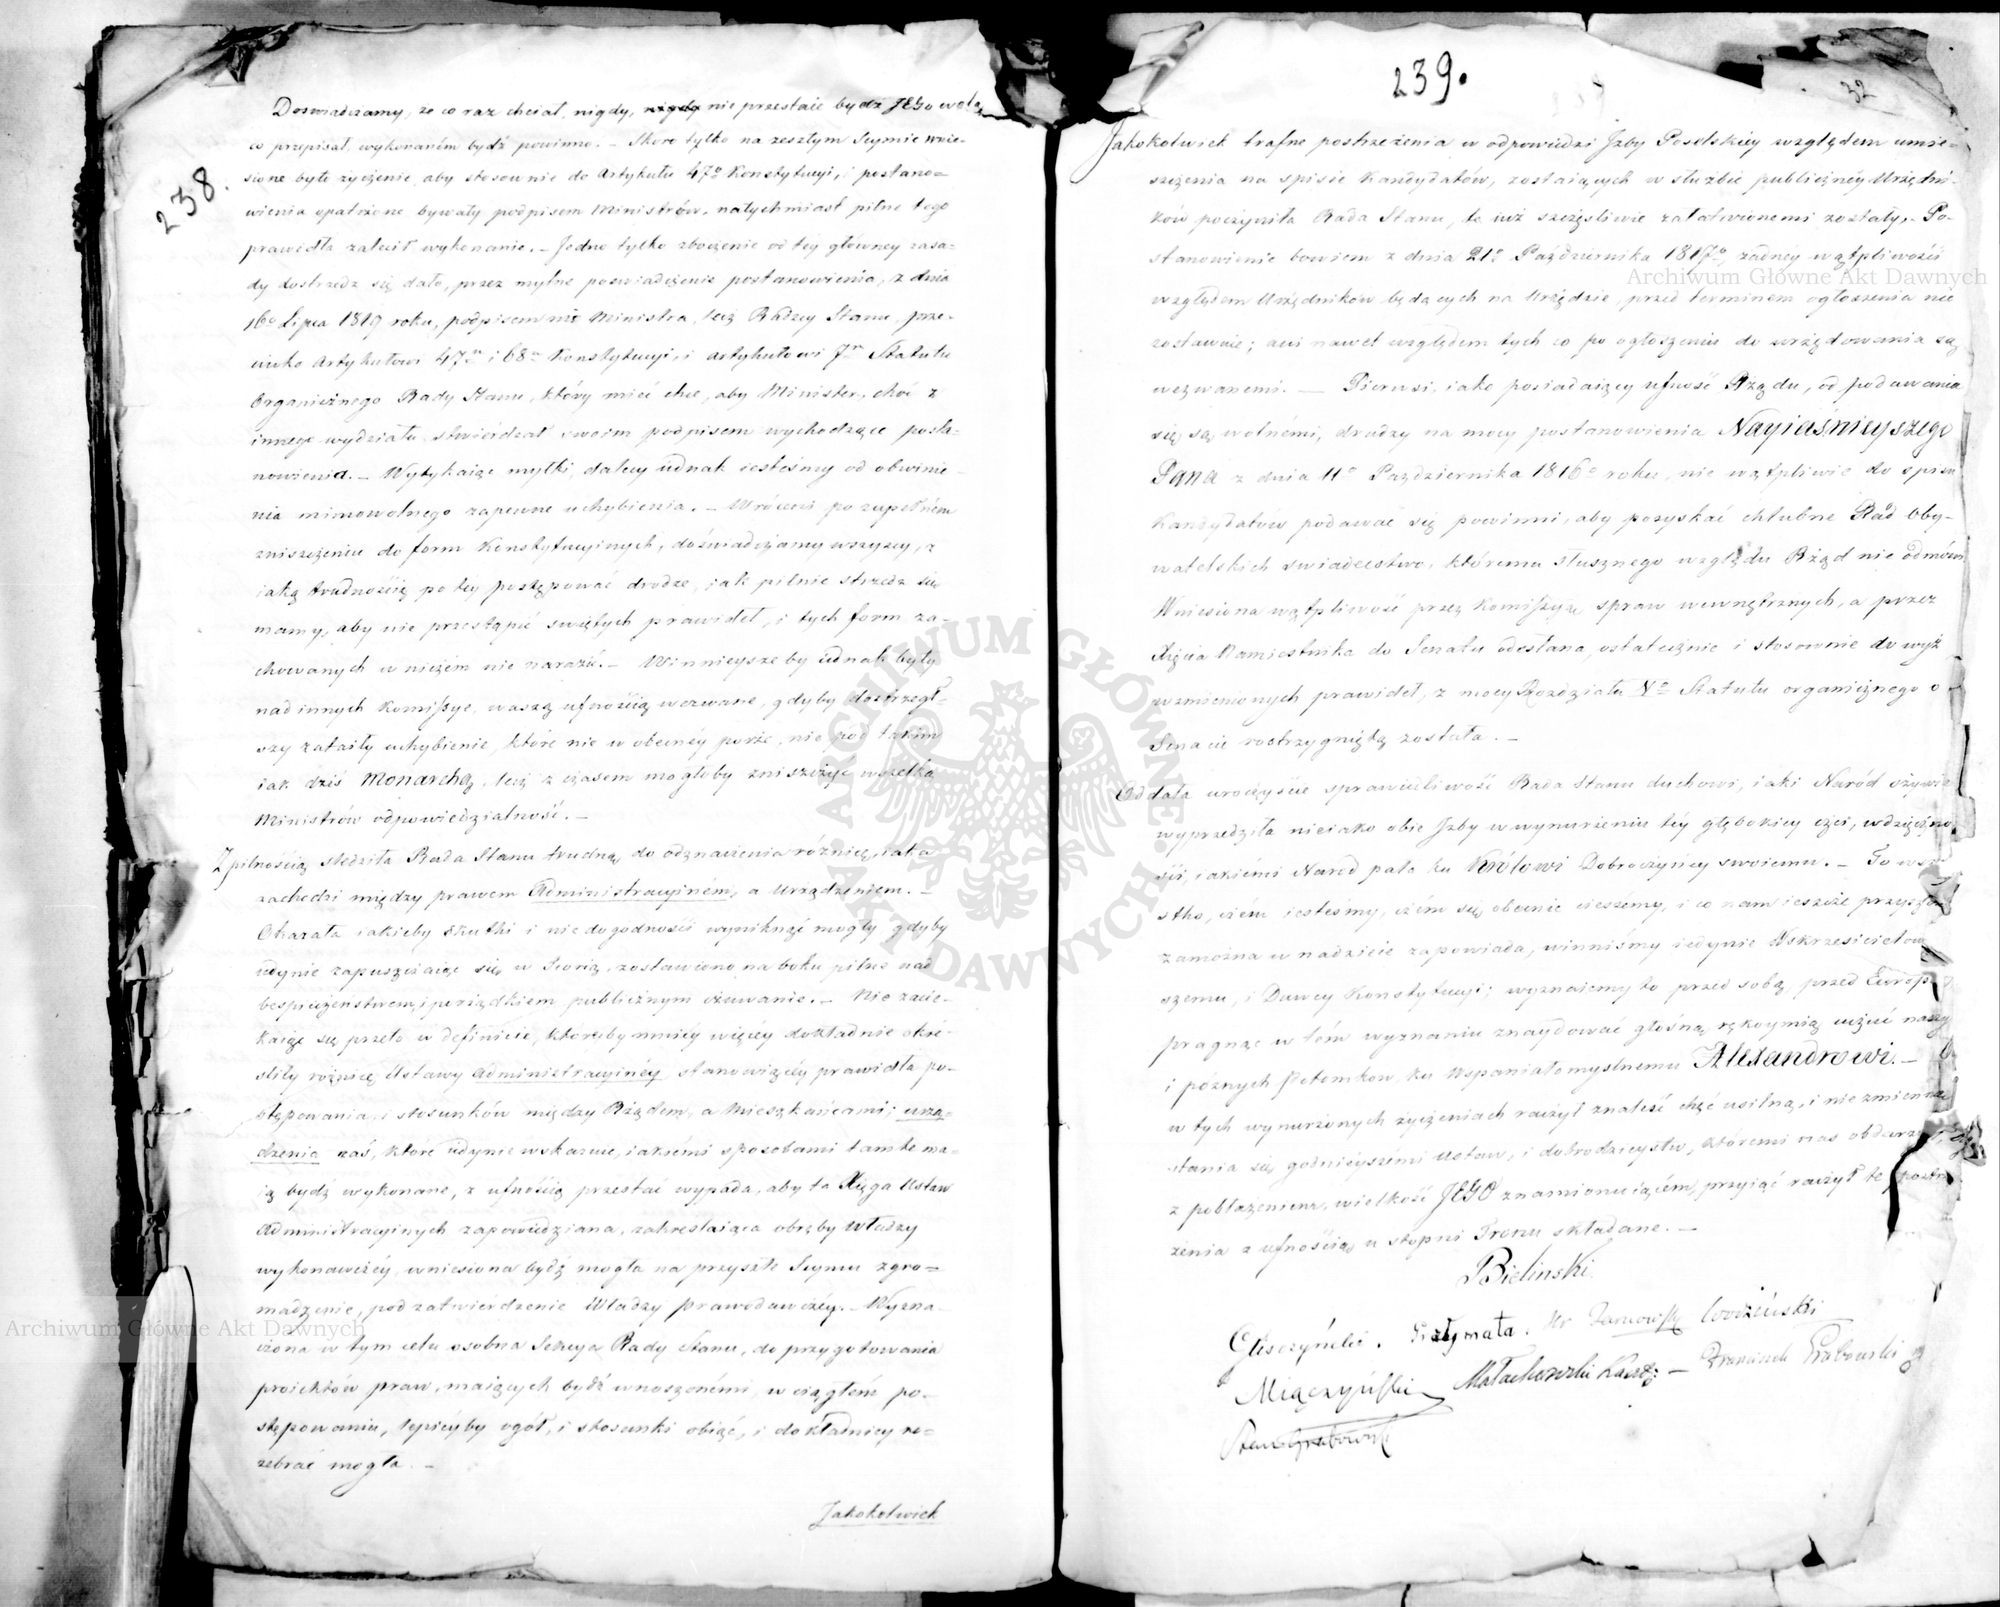 238.
Doswiadczamy, że co raz chciał, nigdy, nigdy nie przestaie bydź JEGO wolą,
co przepisał, wykonaném bydź powinno. – Skoro tylko na zeszłym Seymie wnie-
sione było życzenie, aby stosownie do Artykułu 47º Konstytucyi, i postano-
wienia opatrzone bywały podpisem Ministrów, natychmiast pilne tego
prawidła zalecił wykonanie. – Jedno tylko zboczenie od téy głównéy zasa-
dy dostrzedz się dało, przez mylne poswiadczenie postanowienia, z dnia
16º Lipca 1819 roku, podpisem nie Ministra, lecz Radzcy Stanu, prze-
ciwko Artykułowi 47º i 68º Konstytucyi, i artykułowi Statutu
Organicznego Rady Stanu, który mieć chce, aby Minister, choć z
innego wydziału, stwierdzał swoim podpisem wychodzące posta-
nowienia. – Wytykaiąc myłki, dalecy iednak iesteśmy od obwinie-
nia mimowolnego zapewne uchybienia. – Wróceni po zupełném
zniszczeniu do form Konstytucyinych, doświadczamy wszyscy, z
iaką trudnością po téy postępować drodze, iak pilnie strzedz się
mamy, aby nie przestąpić swiętych prawideł, i tych form za-
chowanych w niczém nie narazić. – Winnieysze by iednak były
nad innych Kommissye, waszą ufnością wezwane, gdyby dostrzegł-
szy zataiły uchybienie, które nie w obecnéy porze, nie pod takim
iak dziś Monarchą, lecz z czasem mogłoby zniszczyć wszelką
Ministrów odpowiedzialność. –
Z pilnością sledziła Rada Stanu trudną do odznaczenia różnicę, iaka
zachodzi między prawem Administracyiném, a Urządzeniem. –
Okazała iakieby skutki i niedogodności wyniknąć mogły gdyby
iedynie zapuszczaiąc się w Teorią, zostawiono na boku pilne nad
bespieczeństwem, i porządkiem publicznym czuwanie. – Nie zacie-
kaiąc się przeto w definicie, któreby mniéy więcéy dokładnie okré-
sliły różnicę Ustawy Administracyinéy stanowiącéy prawidła po-
stępowania, i stosunków między Rządem, a Mieszkańcami; urzą-
dzenia zaś, które iedynie wskazuie, iakiémi sposobami tamte ma-
ią bydź wykonane, z ufnością przestać wypada, aby ta Xięga Ustaw
Administracyinych zapowiedziana, zakreslaiąca obręby Władzy
wykonawczéy, wniesiona bydź mogła na przyszłe Seymu zgro-
madzenie, pod zatwierdzenie Władzy prawodawczéy. – Wyzna-
czona w tym celu osobna Sekcya Rady Stanu, do przygotowania
proiektów praw, maiących bydź wnoszonémi, w ciągłém po-
stępowaniu, lepiéyby ogół, i stosunki obiąć, i dokładniéy ro-
zebrać mogła. –
Jakokolwiek
239.
32
Jakokolwiek trafne postrzeżenia w odpowiedzi Jzby Poselskiey względem umie-
szczenia na spisie Kandydatów, zostaiących w służbie publicznéy Urzędni-
ków poczyniła Rada Stanu, te iuż szczęsliwie załatwionemi zostały. – Po-
stanowienie bowiem z dnia 21º Października 1817º, żadnéy wątpliwości
względem Urzędników będących na Urzędzie, przed terminem ogłoszenia nie
zostawuie; ani nawet względem tych co po ogłoszeniu do urzędowania są
wezwanemi. – Pierwsi, iako posiadaiący ufność Rządu, od podawania
się są wolnémi, drudzy na mocy postanowienia Nayiaśnieyszego
Pana z dnia 11º Października 1816º roku, nie wątpliwie do spisu
Kandydatów podawać się powinni, aby pozyskać chlubne Rad Oby-
watelskich swiadectwo, któremu słusznego względu Rząd nie odmówi.
Wniesiona wątpliwość przez Kommissyą spraw wewnętrznych, a przez
Xięcia Namiestnika do Senatu odesłana, ostatecznie i stosownie do wyż
wzmienionych prawideł, z mocy Rozdziału Vº Statutu organicznego o
Senacie rostrzygniętą została. –
Oddała uroczyście sprawiedliwość Rada Stanu duchowi, iaki Naród ożywia
wyprzedziła nieiako obie Jzby w wynurzeniu téy głębokiey czci, wdzięczno-
ści, iakiémi Naród pała ku Królowi Dobroczyńcy swoiemu. – To wszy-
stko, czém iesteśmy, czém się obecnie cieszémy, i co nam ieszcze przyszłość
zamożna w nadzieie zapowiada, winniśmy iedynie Wskrzesicielowi
szemu, i Dawcy Konstytucyi; wyznaiemy to przed sobą, przed Europą
pragnąc w tém wyznaniu znaydować głośną rękoymią uczuć naszych
i późnych Potomków, ku Wspaniałomyslnemu Alexandrowi. –
w tych wynurzonych życzeniach raczył znaleść chęć usilną, i niezmienną
stania się godnieyszémi Ustaw, i dobrodzieystw, któremi nas obdarzył,
z pobłażeniem, wielkość JEGO znamionuiącém, przyiąć raczył te postrze-
żenia z ufnością u stopni Tronu składane. –
Bielinski
Gliszczyński. Grzymała. Hr Tarnowski Wodziński
Miączyński Małachowski Kaszt: – Franciszek Grabowski
Stan: Grabowski
Archiwum Główne Akt Dawnych
Archiwum Główne Akt Dawnych
ARCHIWUM GŁÓWNE AKT DAWNYCH